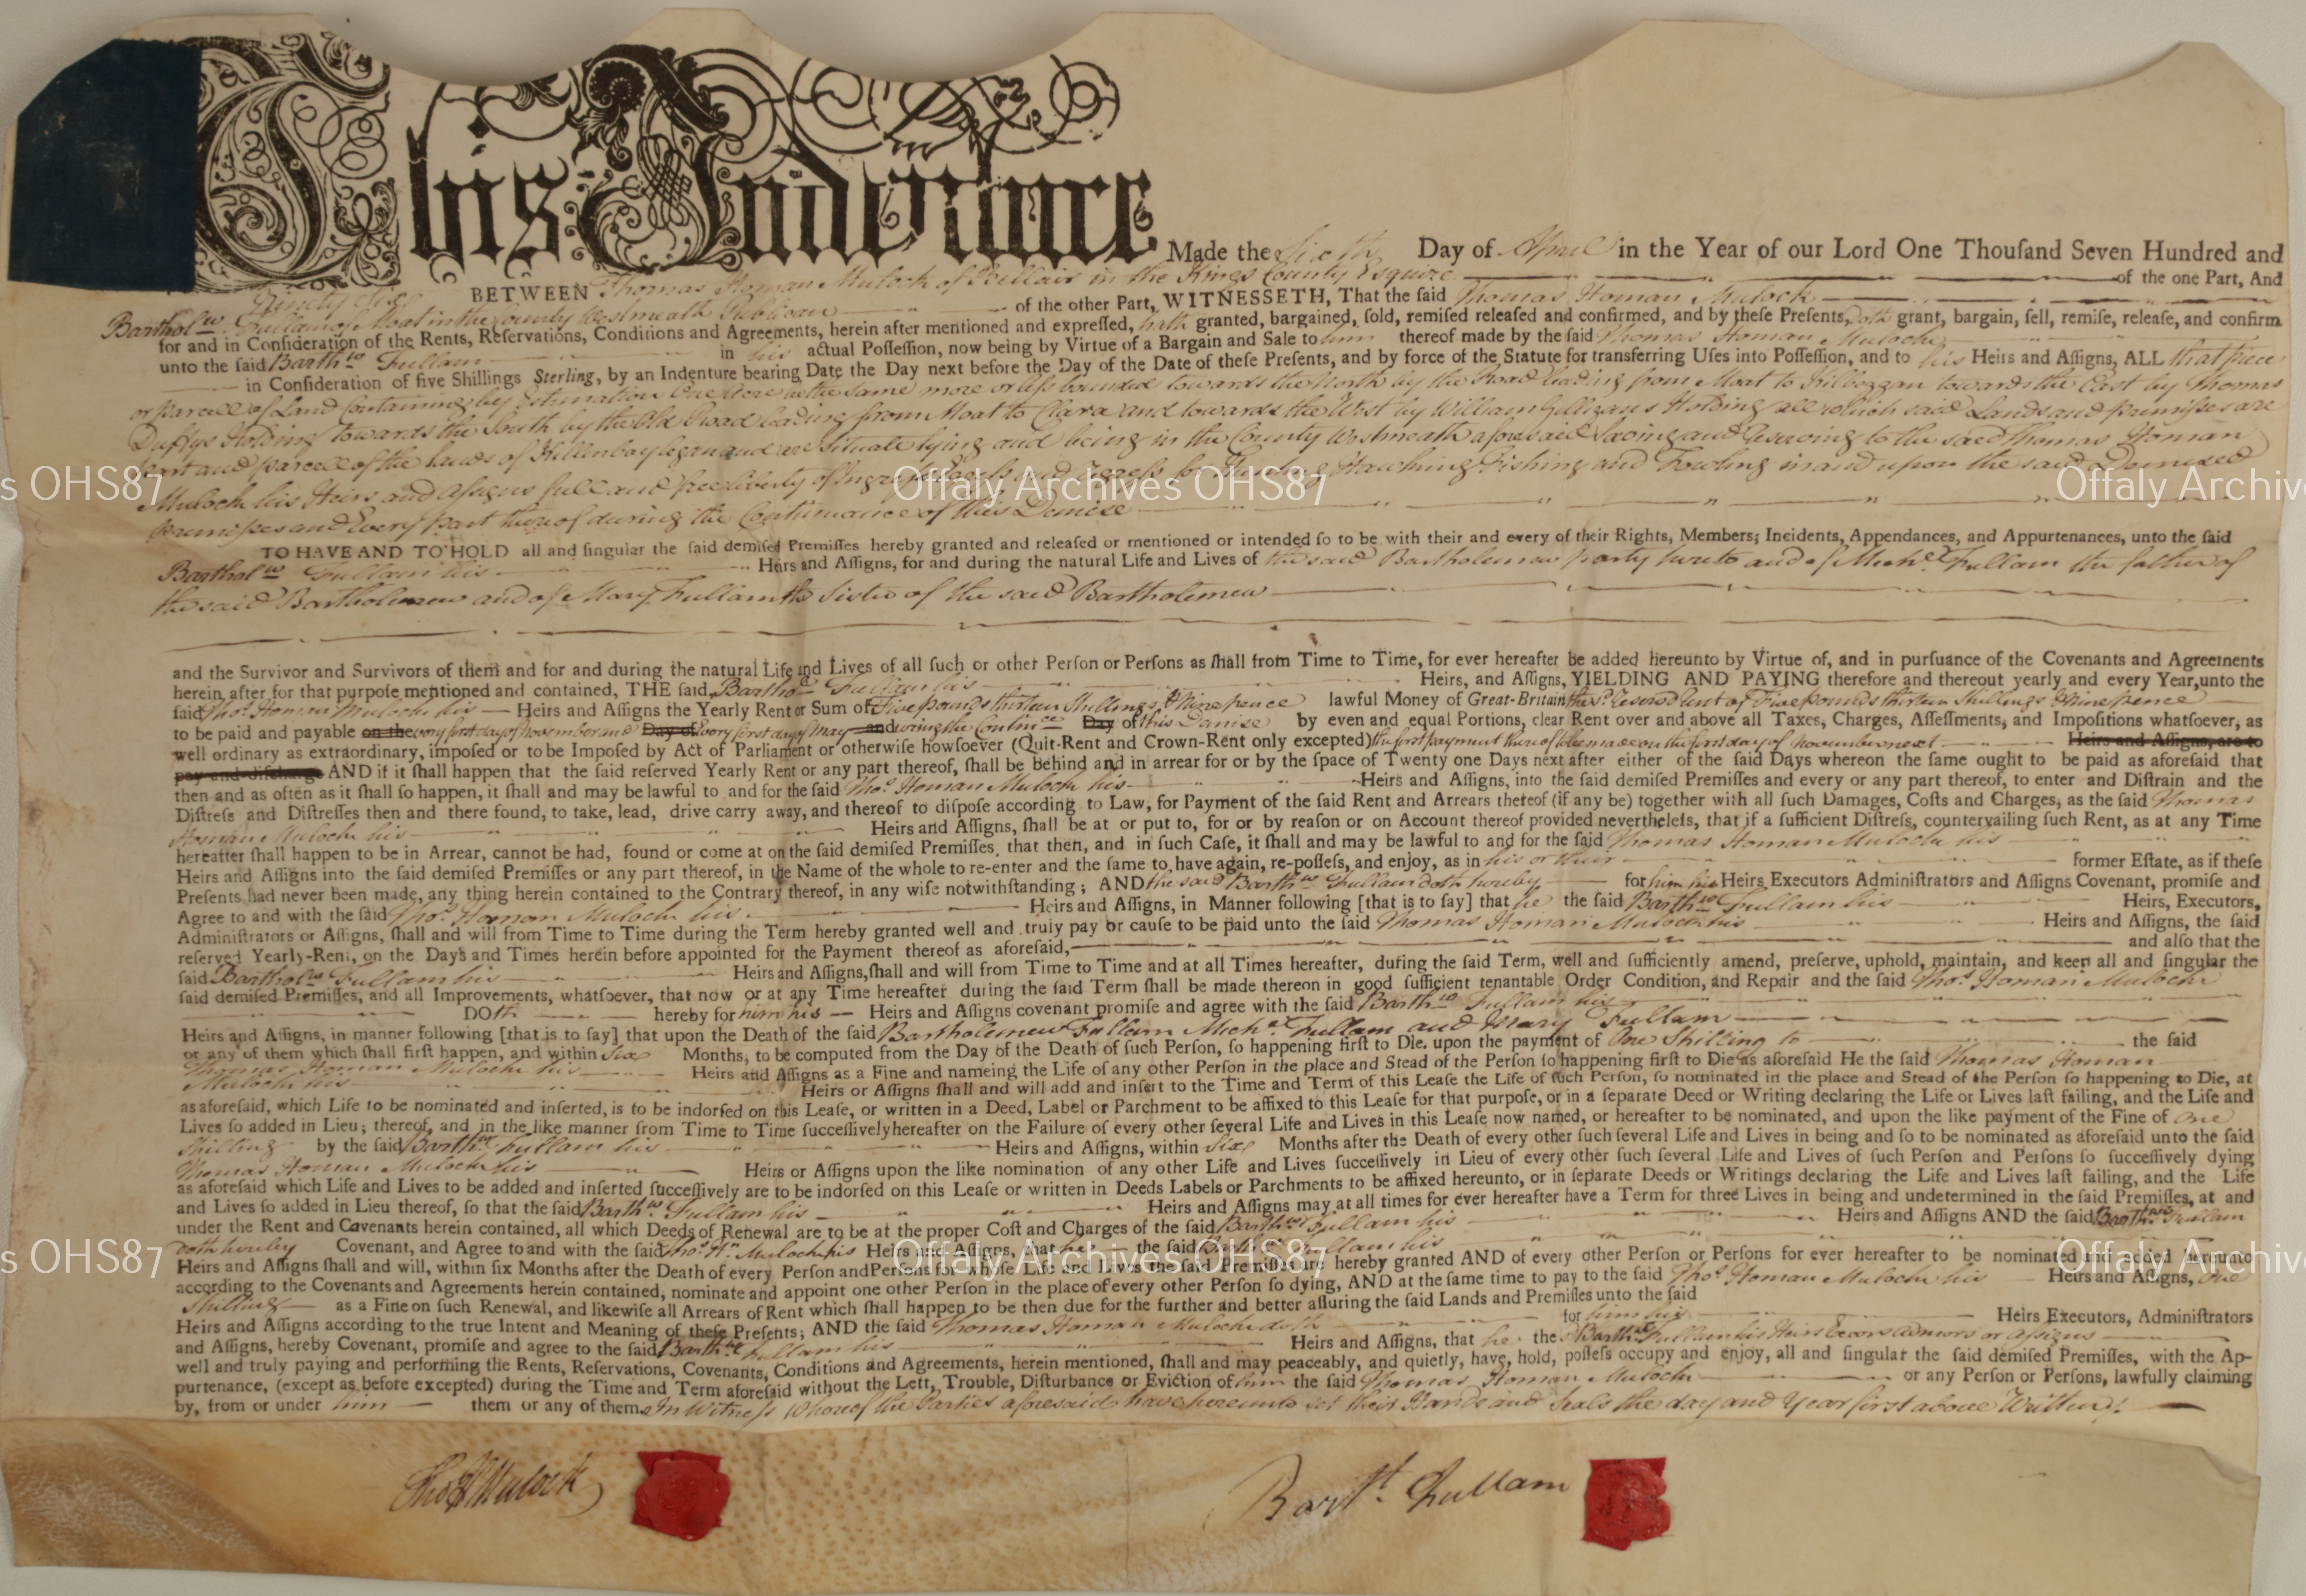 This Indenture Made the Sixth Day of April in the Year of our Lord One Thouſand Seven Hundred and
Ninety Six BETWEEN Thomas Homan Mulock of Bellair in the Kings County Esquire of the one Part, And
Barthol.w Fullam of Moat in the County Westmeath Publican of the other Part, WITNESSETH, That the ſaid Thomas Homan Mulock
for and in Conſideration of the Rents, Reſervations, Conditions and Agreements, herein after mentioned and expreſſed, hath granted, bargained, ſold, remiſed releaſed and confirmed, and by theſe Preſents, doth grant, bargain, ſell, remiſe, releaſe, and confirm
unto the ſaid Barth.w Fullam in his actual Poſſeſſion, now being by Virtue of a Bargain and Sale to him thereof made by the ſaid Thomas Homan Mulock
in Conſideration of five Shillings Sterling, by an Indenture bearing Date the Day next before the Day of the Date of theſe Preſents, and by force of the Statute for transferring Uſes into Poſſeſſion, and to his Heirs and Aſſigns, ALL that piece
or parcell of Land Containing by Estimation One Acre be the same more or less bounded towards the North by the Road leading from Moat to Kilbeggan towards the East by Thomas
Duffys Holding towards the South by the Old Road leading from Moat to Clara and towards the West by William Gilligans Holding all which said Lands and premisses are
part and parcell of the lands of and are Situate lying and being in the County Westmeath aforesaid Saving and Reserving to the said Thomas Homan
Mulock his Heirs and Assigns full and free liberty of Ingress Egress and Regress for Hunting Hawking Fishing and Fowling in and upon the said Demised
premisses and Every part thereof during the Continuance of this Demise
TO HAVE AND TO HOLD all and ſingular the ſaid demiſed Premiſſes hereby granted and releaſed or mentioned or intended ſo to be, with their and every of their Rights, Members; Incidents, Appendances, and Appurtenances, unto the ſaid
Barthol.w Fullam his Heirs and Aſſigns, for and during the natural Life and Lives of the said Bartholemew party hereto and of Mich.l Fullam the father of
the said Bartholemew and of Mary Fullam the Sister of the said Bartholemew
and the Survivor and Survivors of them and for and during the natural Life and Lives of all ſuch or other Perſon or Perſons as ſhall from Time to Time, for ever hereafter be added hereunto by Virtue of, and in purſuance of the Covenants and Agreements
herein after for that purpoſe mentioned and contained, THE ſaid Bartho.w Fullam his Heirs, and Aſſigns, YIELDING AND PAYING therefore and thereout yearly and every Year, unto the
ſaid Tho.s Homan Mulock his Heirs and Aſſigns the Yearly Rent or Sum of Five pounds thirteen Shillings & Nine pence lawful Money of Great-Britain the s.d reserved Rent of Five pounds thirteen Shillings & Nine pence
to be paid and payable on the every first day of November and Day of Every first day of May and during the Contin.ce Day of this Demise by even and equal Portions, clear Rent over and above all Taxes, Charges, Aſſeſſments, and Impoſitions whatſoever, as
well ordinary as extraordinary, impoſed or to be Impoſed by Act of Parliament or otherwiſe howſoever (Quit-Rent and Crown-Rent only excepted) the first payment thereof to be made on the first day of November next Heirs and Aſſigns, are to
pay and diſcharge AND if it ſhall happen that the ſaid reſerved Yearly Rent or any part thereof, ſhall be behind and in arrear for or by the ſpace of Twenty one Days next after either of the ſaid Days whereon the ſame ought to be paid as aforeſaid that
then and as often as it ſhall ſo happen, it ſhall and may be lawful to and for the ſaid Tho.s Homan Mulock his Heirs and Aſſigns, into the ſaid demiſed Premiſſes and every or any part thereof, to enter and Diſtrain and the
Diſtreſs and Diſtreſſes then and there found, to take, lead, drive carry away, and thereof to diſpoſe according to Law, for Payment of the ſaid Rent and Arrears thereof (if any be) together with all ſuch Damages, Coſts and Charges, as the ſaid Thomas
Homan Mulock his Heirs and Aſſigns, ſhall be at or put to, for or by reaſon or on Account thereof provided nevertheleſs, that if a ſufficient Diſtreſs, countervailing ſuch Rent, as at any Time
hereafter ſhall happen to be in Arrear, cannot be had, found or come at on the ſaid demiſed Premiſſes, that then, and in ſuch Caſe, it ſhall and may be lawful to and for the ſaid Thomas Homan Mulock his
Heirs and Aſſigns into the ſaid demiſed Premiſſes or any part thereof, in the Name of the whole to re-enter and the ſame to have again, re-poſſeſs, and enjoy, as in his or their former Eſtate, as if theſe
Preſents had never been made, any thing herein contained to the Contrary thereof, in any wiſe notwithſtanding; AND the said Barth.w Fullam doth hereby for him his Heirs, Executors Adminiſtrators and Aſſigns Covenant, promiſe and
Agree to and with the ſaid Tho.s Homan Mulock his Heirs and Aſſigns, in Manner following [that is to ſay] that he the ſaid Barth.w Fullam his Heirs, Executors,
Adminiſtrators or Aſſigns, ſhall and will from Time to Time during the Term hereby granted well and truly pay or cauſe to be paid unto the ſaid Thomas Homan Mulock his Heirs and Aſſigns, the ſaid
reſerved Yearly-Rent, on the Days and Times herein before appointed for the Payment thereof as aforeſaid, and alſo that the
ſaid Barthol.w Fullam his Heirs and Aſſigns, ſhall and will from Time to Time and at all Times hereafter, during the ſaid Term, well and ſufficiently amend, preſerve, uphold, maintain, and keep all and ſingular the
ſaid demiſed Premiſſes, and all Improvements, whatſoever, that now or at any Time hereafter during the ſaid Term ſhall be made thereon in good ſufficient tenantable Order Condition, and Repair and the ſaid Tho.s Homan Mulock
DOth hereby for him his Heirs and Aſſigns covenant promiſe and agree with the ſaid Barth.w Fullam his
Heirs and Aſſigns, in manner following [that is to ſay] that upon the Death of the ſaid Bartholemew Fullam Mich.l Fullam and Mary Fullam
or any of them which ſhall firſt happen, and within Six Months, to be computed from the Day of the Death of ſuch Perſon, ſo happening firſt to Die. upon the payment of One Shilling to the ſaid
Thomas Homan Mulock his Heirs and Aſſigns as a Fine and nameing the Life of any other Perſon in the place and Stead of the Perſon ſo happening firſt to Die as aforeſaid He the ſaid Thomas Homan
Mulock his Heirs or Aſſigns ſhall and will add and inſert to the Time and Term of this Leaſe the Life of ſuch Perſon, ſo nominated in the place and Stead of the Perſon ſo happening to Die, at
as aforeſaid, which Life to be nominated and inſerted, is to be indorſed on this Leaſe, or written in a Deed, Label or Parchment to be affixed to this Leaſe for that purpoſe, or in a ſeparate Deed or Writing declaring the Life or Lives laſt failing, and the Life and
Lives ſo added in Lieu; thereof, and in the like manner from Time to Time ſucceſſively hereafter on the Failure of every other ſeveral Life and Lives in this Leaſe now named, or hereafter to be nominated, and upon the like payment of the Fine of One
Shilling by the ſaid Barth.w Fullam his Heirs and Aſſigns, within Six Months after the Death of every other ſuch ſeveral Life and Lives in being and ſo to be nominated as aforeſaid unto the ſaid
Thomas Homan Mulock his Heirs or Aſſigns upon the like nomination of any other Life and Lives ſucceſſively in Lieu of every other ſuch ſeveral Life and Lives of ſuch Perſon and Perſons ſo ſucceſſively dying
as aforeſaid which Life and Lives to be added and inſerted ſucceſſively are to be indorſed on this Leaſe or written in Deeds Labels or Parchments to be affixed hereunto, or in ſeparate Deeds or Writings declaring the Life and Lives laſt failing, and the Life
and Lives ſo added in Lieu thereof, ſo that the ſaid Barth.w Fullam his Heirs and Aſſigns may at all times for ever hereafter have a Term for three Lives in being and undetermined in the ſaid Premiſſes, at and
under the Rent and Covenants herein contained, all which Deeds of Renewal are to be at the proper Coſt and Charges of the ſaid Barth.w Fullam his Heirs and Aſſigns AND the ſaid Barth.w Fullam
doth hereby Covenant, and Agree to and with the ſaid Tho.s H. Mulock his Heirs and Aſſigns, that he the ſaid Barth.w Fullam his
Heirs and Aſſigns ſhall and will, within ſix Months after the Death of every Perſon and Perſons for whoſe Life and Lives the ſaid Premiſſes are hereby granted AND of every other Perſon or Perſons for ever hereafter to be nominated and added hereunto
according to the Covenants and Agreements herein contained, nominate and appoint one other Perſon in the place of every other Perſon ſo dying, AND at the ſame time to pay to the ſaid Tho.s Homan Mulock his Heirs and Aſſigns, One
Shilling as a Fine on ſuch Renewal, and likewiſe all Arrears of Rent which ſhall happen to be then due for the further and better aſſuring the ſaid Lands and Premiſſes unto the ſaid
Heirs and Aſſigns according to the true Intent and Meaning of theſe Preſents; AND the ſaid Thomas Homan Mulock doth for him his Heirs Executors, Adminiſtrators
and Aſſigns, hereby Covenant, promiſe and agree to the ſaid Barth.w Fullam his Heirs and Aſſigns, that he the s.d Barth.w Fullam his Heirs Exors Admors or Assigns
well and truly paying and performing the Rents, Reſervations, Covenants, Conditions and Agreements, herein mentioned, ſhall and may peaceably, and quietly, have, hold, poſſeſs occupy and enjoy, all and ſingular the ſaid demiſed Premiſſes, with the Ap-
purtenance, (except as before excepted) during the Time and Term aforeſaid without the Lett, Trouble, Diſturbance or Eviction of him the ſaid Thomas Homan Mulock or any Perſon or Perſons, lawfully claiming
by, from or under him them or any of them. In Witness Whereof the Parties aforesaid have hereunto set their Hands and Seals the day and Year first above Written
Tho H Mulock Bar.t Fullam
s OHS87 Offaly Archives OHS87 Offaly Archiv
s OHS87 Offaly Archives OHS87 Offaly Archiv